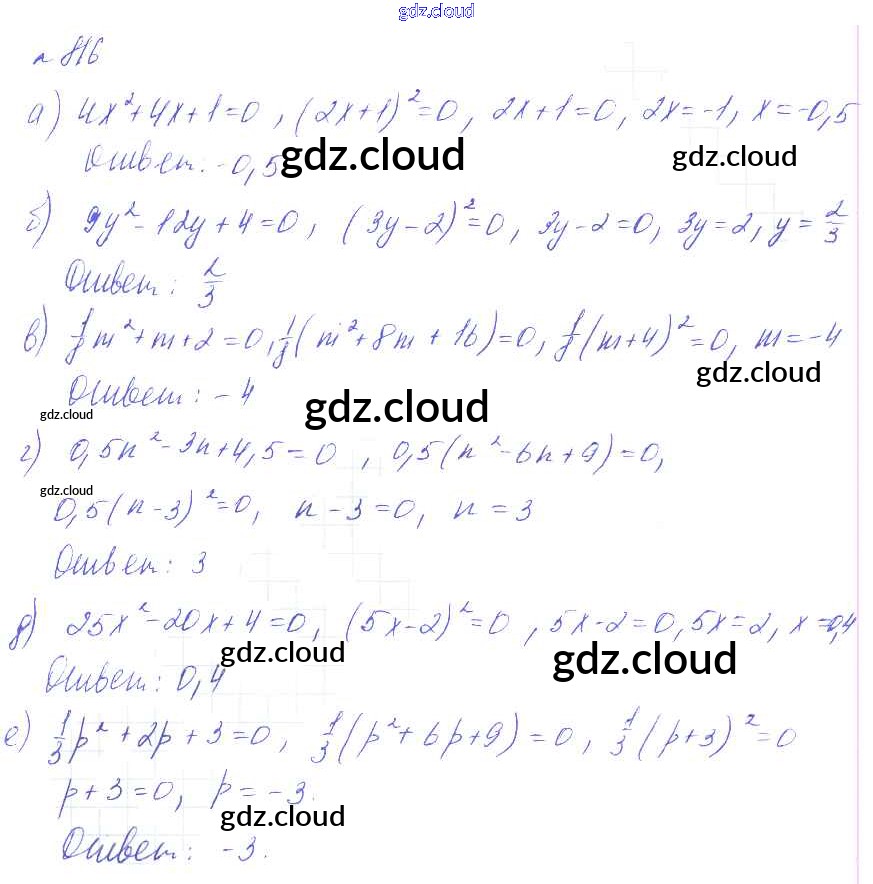 gdz.cloud
№ 816
а) 4x²+4x+1=0, (2x+1)²=0, 2x+1=0, 2x=-1, x=-0,5
Ответ: -0,5 gdz.cloud gdz.cloud
б) 9y²-12y+4=0, (3y-2)²=0, 3y-2=0, 3y=2, y=2/3
Ответ: 2/3
в) 1/8m²+m+2=0, 1/8(m²+8m+16)=0, 1/8(m+4)²=0, m=-4
gdz.cloud
Ответ: -4 gdz.cloud
gdz.cloud
г) 0,5n²-3n+4,5=0, 0,5(n²-6n+9)=0,
gdz.cloud
0,5(n-3)²=0, n-3=0, n=3
Ответ: 3
д) 25x²-20x+4=0, (5x-2)²=0, 5x-2=0, 5x=2, x=0,4
gdz.cloud gdz.cloud
Ответ: 0,4
е) 1/3p²+2p+3=0, 1/3(p²+6p+9)=0, 1/3(p+3)²=0
p+3=0, p=-3.
gdz.cloud
Ответ: -3.